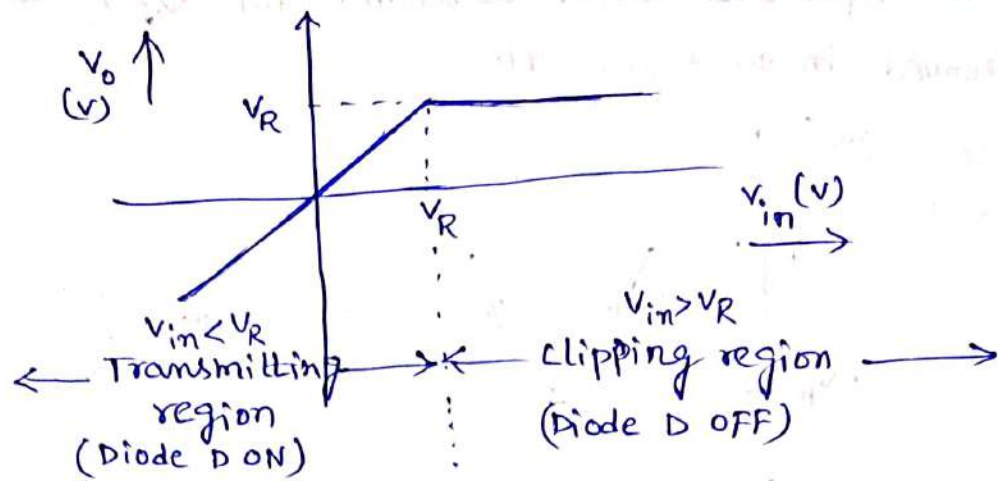 V₀
(V)
V_R
V_R
V_in (V)
V_in < V_R
Transmitting
region
(Diode D ON)
V_in > V_R
Clipping region
(Diode D OFF)